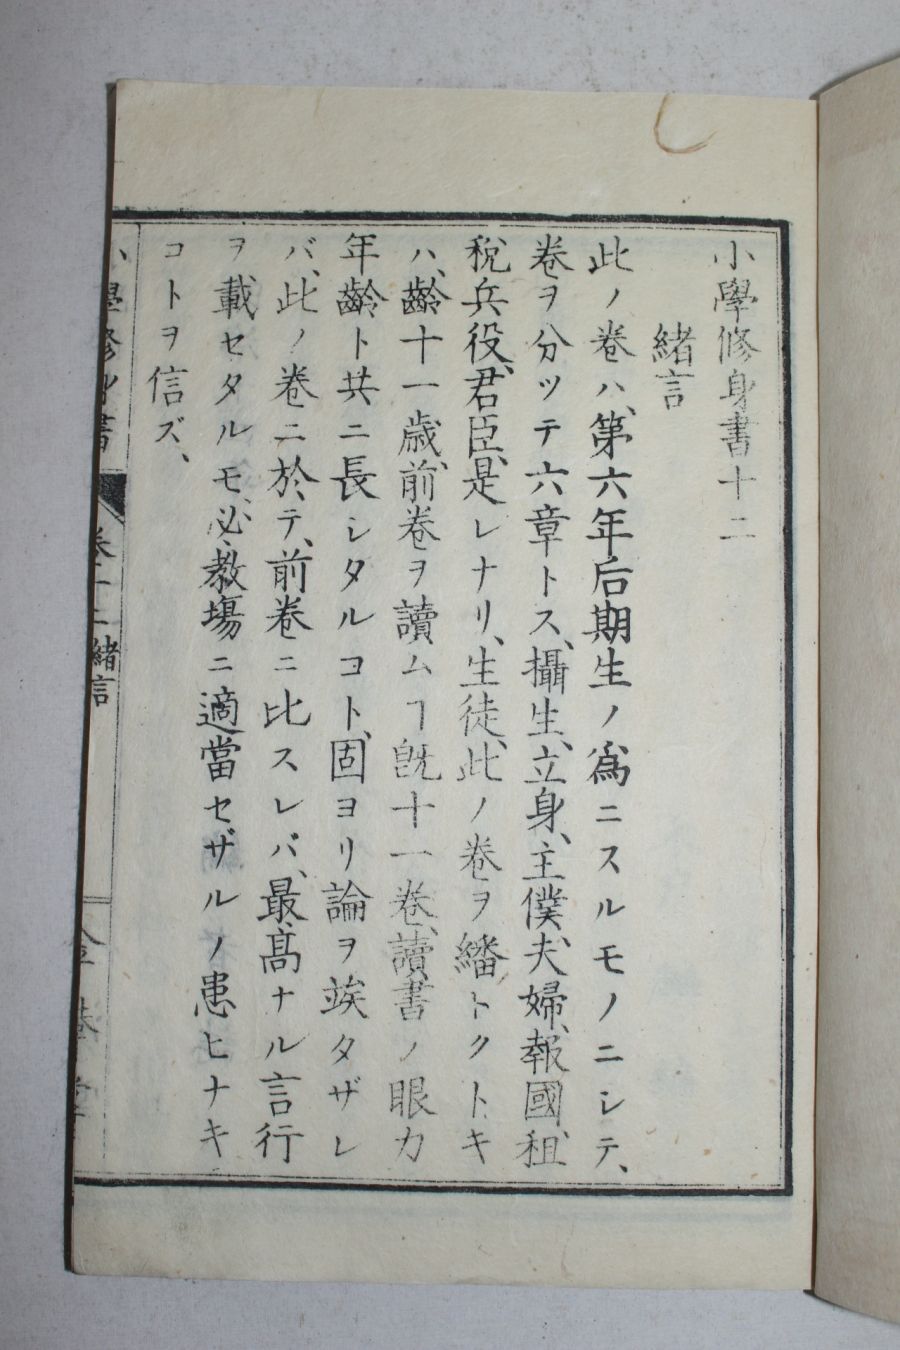 小學修身書十二
緒言
此ノ卷ハ、第六年后期生ノ爲ニスルモノニシテ、
卷ヲ分ツテ六章トス、攝生、立身、主僕、夫婦、報國、租
稅、兵役、君臣、是レナリ、生徒、此ノ卷ヲ繙トクトキ
ハ、齡十一歲、前卷ヲ讀ムヿ旣十一卷、讀書ノ眼力
年齡ト共ニ長シタルコト、固ヨリ論ヲ竢タザレ
バ、此ノ卷ニ於テ、前卷ニ比スレバ、最高ナル言行
ヲ載セタルモ、必、敎塲ニ適當セザルノ患ヒナキ
コトヲ信ズ、
小學修身書 卷十二 緒言